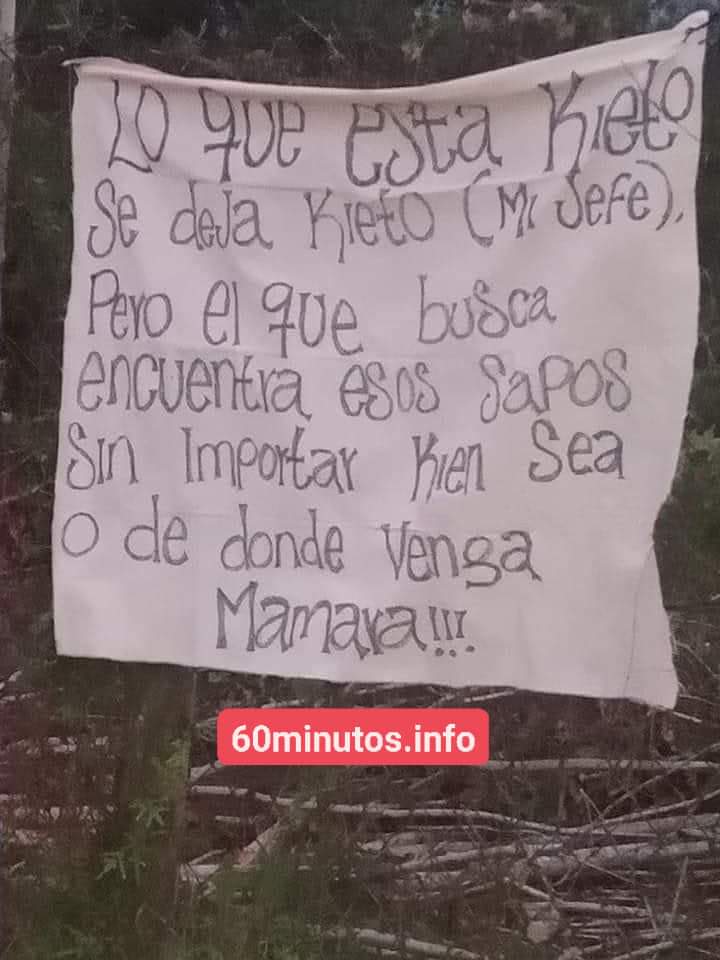 Lo que esta Kieto
Se deja Kieto (Mi Jefe).
Pero el que busca
encuentra esos sapos
Sin Importar Kien Sea
O de donde venga
Mamara!!!
60minutos.info